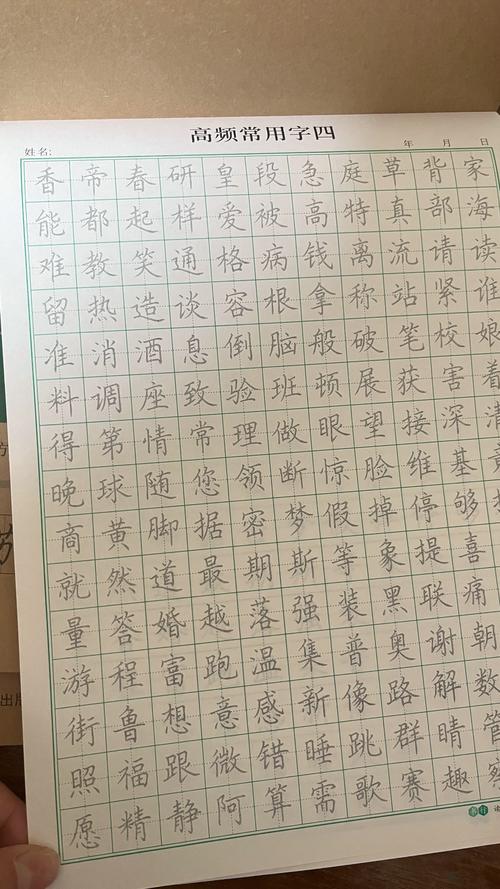 高频常用字四
姓名: 年 月 日
香帝春研皇段急庭草背家
能都起样爱被高特真部海
难教笑通格病钱离流请读
留热造谈容根拿称站紧谁
准消酒息倒脑般破笔校娘
料调座致验班顿展获害着
得第情常理做眼望接深清
晚球随您领断惊脸维基
商黄脚据密梦假掉停够
就然道最期斯等象提喜
量答婚越落强装黑联痛
游程富跑温集普奥谢朝
街鲁想意感新像路解数
照福跟微错睡跳群睛管
愿精静阿算需歌赛趣